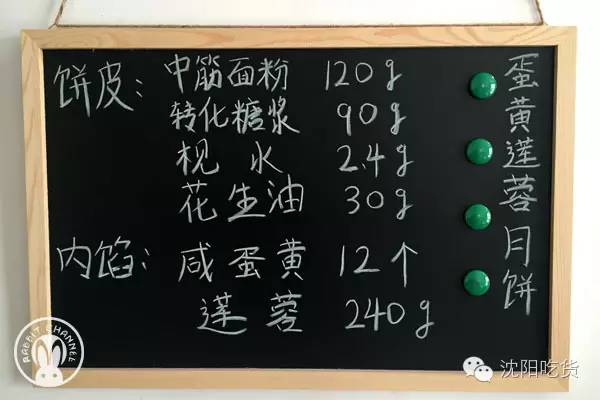 蛋黄莲蓉月饼
饼皮：中筋面粉 120g
转化糖浆 90g
枧水 2.4g
花生油 30g
内馅：咸蛋黄 12个
莲蓉 240g
RABBIT CHANNEL
沈阳吃货